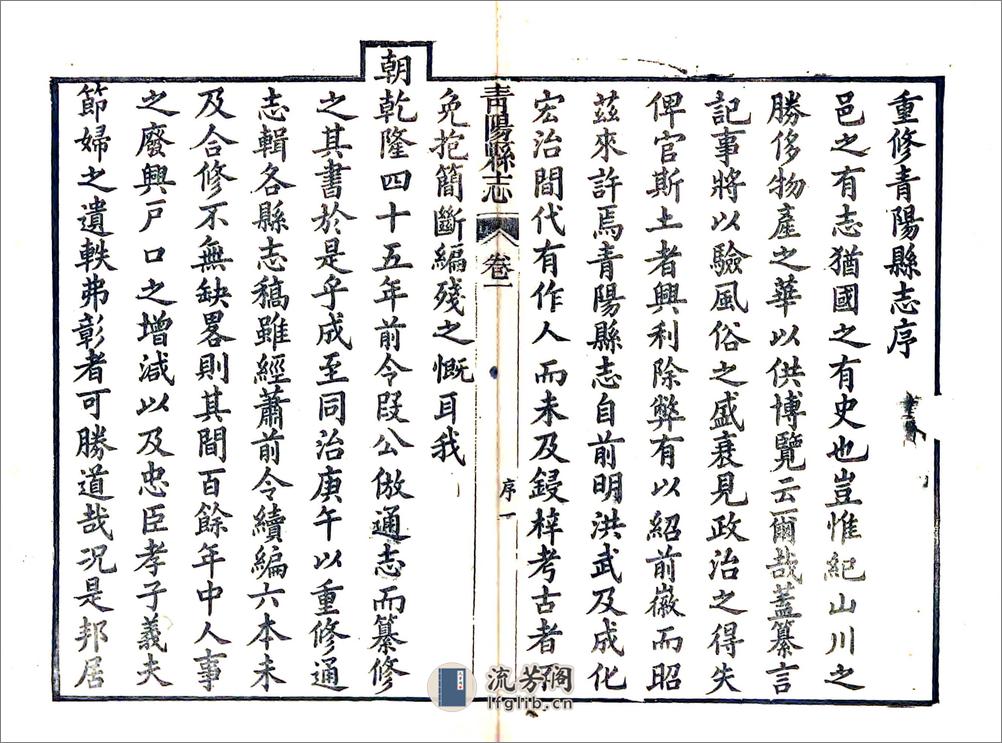 重修青陽縣志序
邑之有志猶國之有史也豈惟紀山川之
勝侈物產之華以供博覽云爾哉蓋纂言
記事將以驗風俗之盛衰見政治之得失
俾官斯土者興利除弊有以紹前徽而昭
茲來許焉青陽縣志自前明洪武及成化
宏治間代有作人而未及鋟梓考古者
青陽縣志
卷一
序一
免抱簡斷編殘之慨耳我
朝乾隆四十五年前令段公倣通志而纂修
之其書於是乎成至同治庚午以重修通
志輯各縣志稿雖經蕭前令續編六本未
及合修不無缺畧則其間百餘年中人事
之廢興戸口之增減以及忠臣孝子義夫
節婦之遺軼弗彰者可勝道哉况是邦居
流芳阁
lfglib.cn